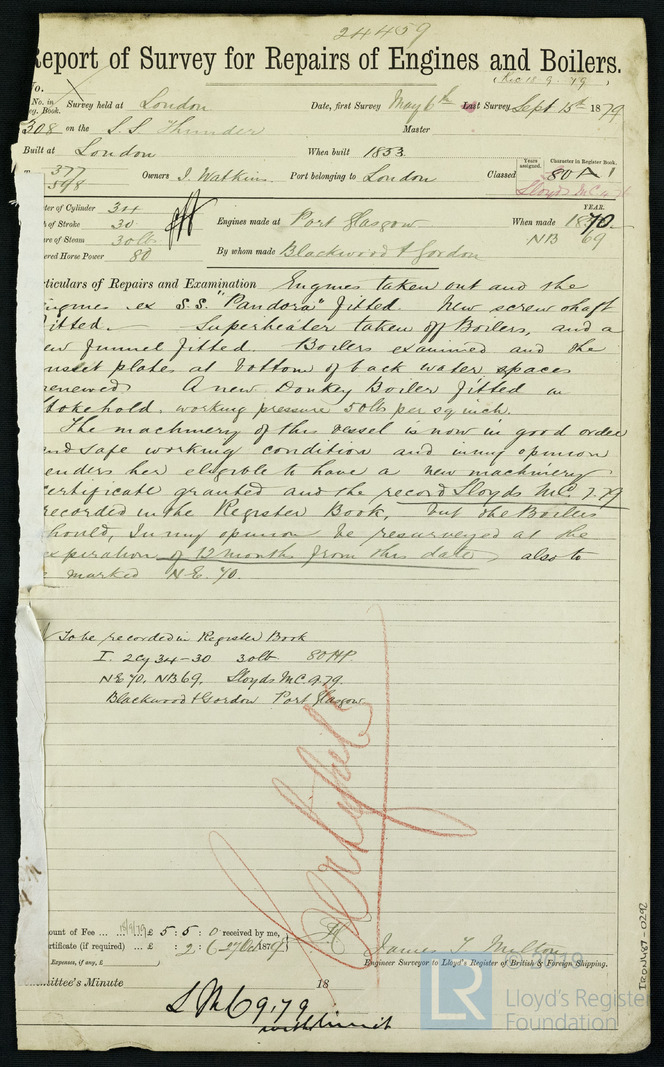 24459
Report of Survey for Repairs of Engines and Boilers.
(Rec 18.9.79)
No.
No. in Reg. Book. Survey held at London Date, first Survey May 6th Last Survey Sept 15th 1879
308 on the S.S. Thunder Master
Built at London When built 1853
377
598 Owners J. Watkins Port belonging to London Classed Years assigned. Character in Register Book. 80 A 1
Lloyds MC 4.76
ter of Cylinder 34
h of Stroke 30 Engines made at Port Glasgow When made YEAR. 1870
re of Steam 30lb NB 69
ered Horse Power 80 By whom made Blackwood & Gordon
ticulars of Repairs and Examination Engines taken out and the
ngines ex S.S. "Pandora" fitted. New screw shaft
fitted. Superheater taken off Boilers, and a
ew funnel fitted. Boilers examined and the
plates at bottom of back water spaces
renewed. A new Donkey Boiler fitted in
Stokehold. working pressure 50lbs per sq inch.
The machinery of this vessel is now in good order
and safe working condition and in my opinion
enders her eligible to have a new machinery
certificate granted and the record Lloyds M.C. 7.79
recorded in the Register Book, but the Boilers
should, in my opinion be resurveyed at the
expiration of 12 months from this date, also to
marked N.E. 70.
To be recorded in Register Book
I. 2Cy 34-30 30lb 80HP.
NE 70, NB 69. Lloyds MC 9.79
Blackwood & Gordon Port Glasgow
Certificate
ount of Fee ... 18/9/79 £ 5 : 5 : 0 received by me,
rtificate (if required) ... £ : 2 : 6 27 Oct 1879
Expenses, (if any, £ )
James T. Milton
Engineer Surveyor to Lloyd's Register of British & Foreign Shipping.
mmittee's Minute 18
LMC 9.79
without limit
IRON487-0292
LR
Lloyd's Register
Foundation